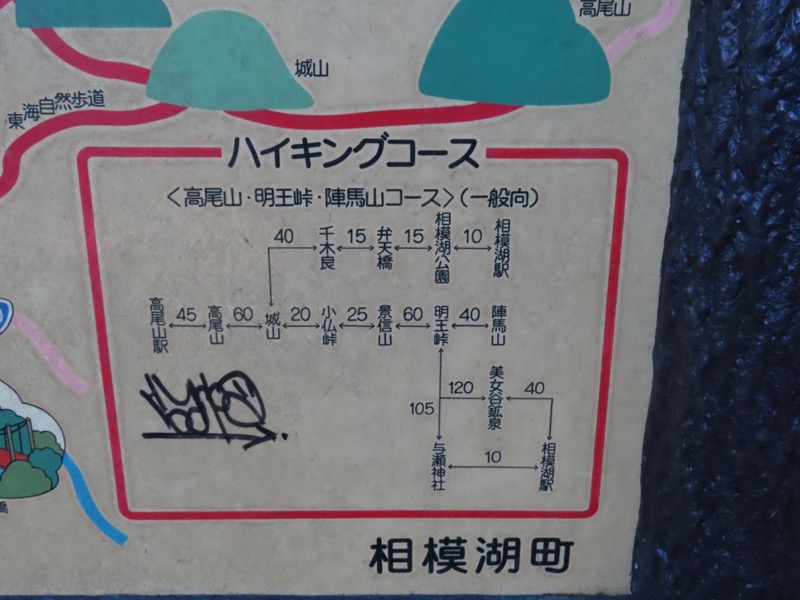 高尾山
城山
東海自然歩道
ハイキングコース
〈高尾山・明王峠・陣馬山コース〉(一般向)
40 千木良 15 弁天橋 15 相模湖公園 10 相模湖駅
高尾山駅 45 高尾山 60 城山 20 小仏峠 25 景信山 60 明王峠 40 陣馬山
105 120 美女谷鉱泉 40
与瀬神社 10 相模湖駅
相模湖町